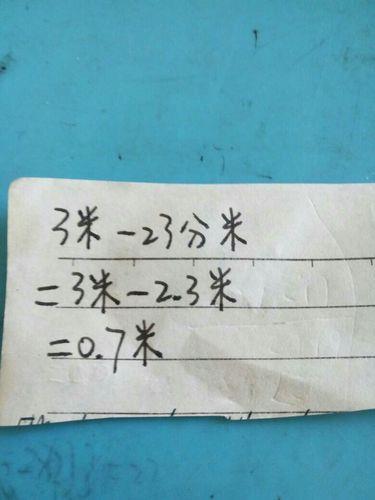 3米-23分米
=3米-2.3米
=0.7米